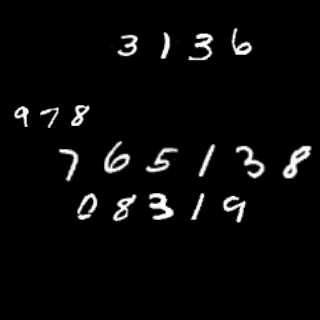 3136
978
765138
08319